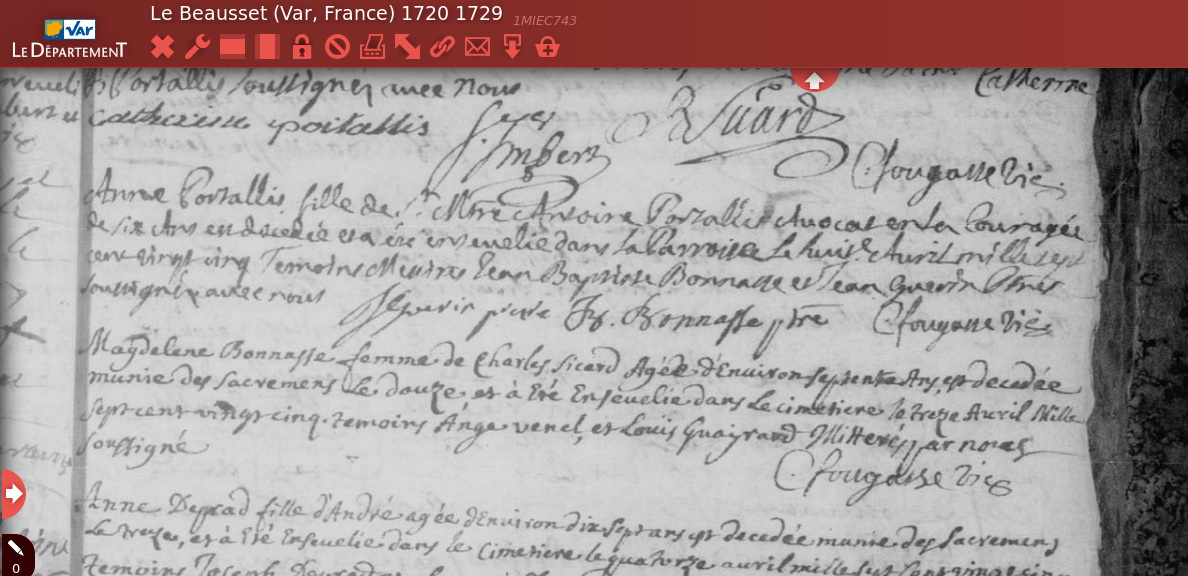 Le Beausset (Var, France) 1720 1729 1MIEC743
VAR
LE DÉPARTEMENT
Catherine
Portallis soussignez avec nous
catherine portallis
Imbert
Suard
C fougasse vic.
Anne Portallis fille de Sr. Mtre Antoine Portallis Avocat en la Cour agée
de six Ans est décedée et a été ensevelie dans la Parroisse Le huit Avril mille sept
cent vingt cinq Temoins Messires Jean Baptiste Bonnasse et Jean Guerin Ptres
soussignez avec nous
J guerin ptre Bonnasse ptre C fougasse vic
Magdelene Bonnasse femme de Charles Sicard Agée d'Environ septente Ans est decedée
munie des Sacremens Le douze, et à Eté Ensevelie dans Le cimetiere le treze Avril Mille
sept cent vingt cinq. temoins Ange venel, et Louis Guayrard Illitterés par nous
soussigné
C fougasse vic
Anne Deprad fille d'André agée d'Environ dix sept ans est decedée munie des Sacremens
Le treze, et à Eté Ensevelie dans le Cimetiere le quatorze avril mille sept cent vingt cinq
temoins Joseph
0